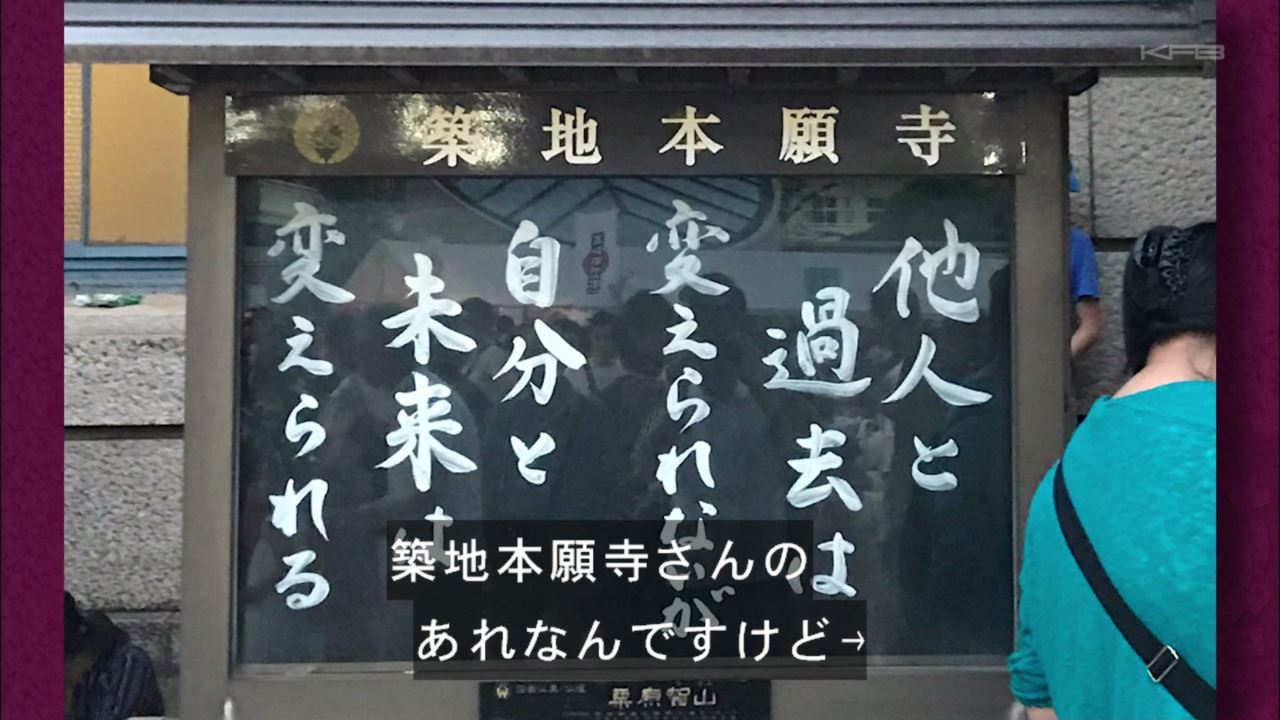 KFB
築地本願寺
他人と
過去は
変えられないが
自分と
未来は
変えられる
築地本願寺さんの
あれなんですけど→